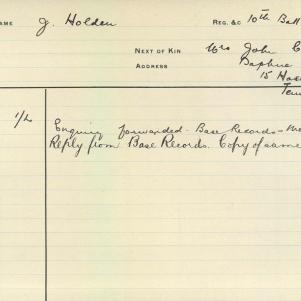 NAME J. Holden REG. &C 10th Batt
NEXT OF KIN Mrs John
ADDRESS Daphne
15
1/2 Enquiry forwarded - Base Records -
Reply from Base Records. Copy of same